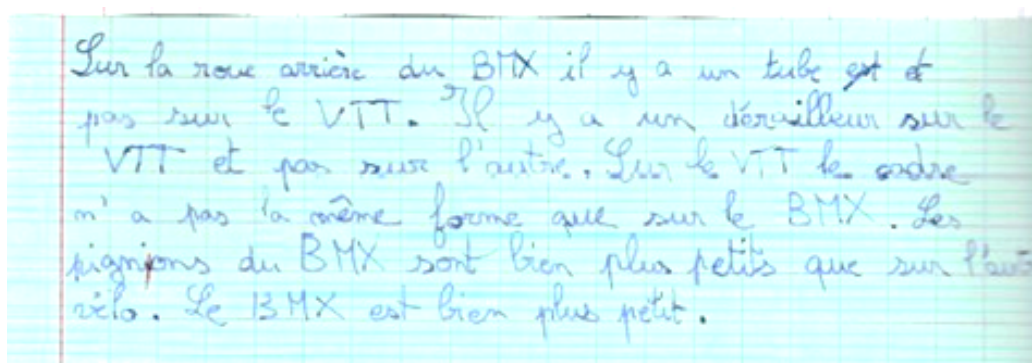 Sur la roue arrière du BMX il y a un tube et
pas sur le VTT. Il y a un dérailleur sur le
VTT et pas sur l'autre. Sur le VTT le cadre
n'a pas la même forme que sur le BMX. Les
pignons du BMX sont bien plus petits que sur
vélo. Le BMX est bien plus petit.